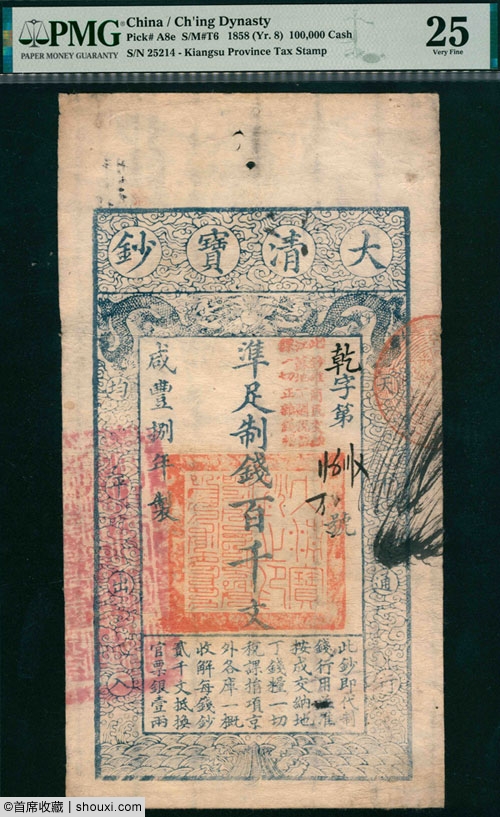 PMG
PAPER MONEY GUARANTY
China / Ch'ing Dynasty
Pick# A8e S/M#T6 1858 (Yr. 8) 100,000 Cash
S/N 25214 - Kiangsu Province Tax Stamp
25
Very Fine
大清寶鈔
天通行
乾字第號
準足制錢百千文
咸豐捌年製
均平出入
此鈔即代制
錢行用並準
按成交納地
丁錢糧一切
稅課捐項京
外各庫一概
收解每錢鈔
貳千文抵換
官票銀壹兩
©首席收藏 | shouxi.com